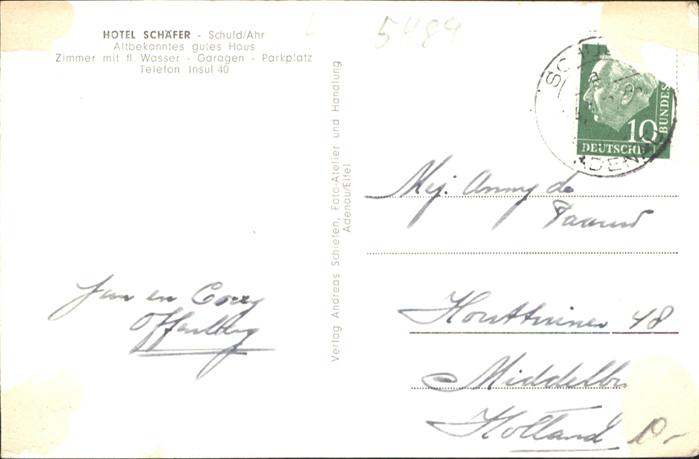 HOTEL SCHÄFER - Schuld/Ahr
Altbekanntes gutes Haus
Zimmer mit fl. Wasser - Garagen - Parkplatz
Telefon Insul 40
5489
Verlag Andreas Schiefen, Foto-Atelier und Handlung
Adenau/Eifel
10
DEUTSCHE
BUNDES
SCHU
ADENA
Mej. Anny de
Jan en Corry
Offenberg
48
Middelbu
Holland